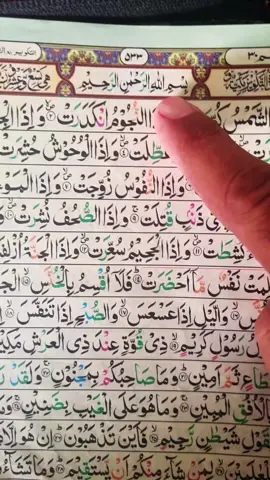 التكوير ٨١
٥٣٣
عم ٣٠
بِسْمِ اللهِ الرَّحْمٰنِ الرَّحِيْمِ
الشَّمْسُ النُّجُوْمُ انْكَدَرَتْ ۙ وَاِذَا
عُطِّلَتْ ۙ وَاِذَا الْوُحُوْشُ حُشِرَتْ
وَاِذَا النُّفُوْسُ زُوِّجَتْ ۙ وَاِذَا
ذَنْۢبٍ قُتِلَتْ ۚ وَاِذَا الصُّحُفُ نُشِرَتْ ۙ
كُشِطَتْ ۙ وَاِذَا الْجَحِيْمُ سُعِّرَتْ ۙ وَاِذَا الْجَنَّةُ
نَفْسٌ مَّاۤ اَحْضَرَتْ ؕ فَلَاۤ اُقْسِمُ بِالْخُنَّسِ ۙ
وَالَّيْلِ اِذَا عَسْعَسَ ۙ وَالصُّبْحِ اِذَا تَنَفَّسَ ۙ
رَسُوْلٍ كَرِيْمٍ ۙ ذِيْ قُوَّةٍ عِنْدَ ذِي الْعَرْشِ
ثَمَّ اَمِيْنٍ ؕ وَمَا صَاحِبُكُمْ بِمَجْنُوْنٍ ۚ وَلَقَدْ
الْمُبِيْنِ ۚ وَمَا هُوَ عَلَى الْغَيْبِ بِضَنِيْنٍ ۚ
شَيْطٰنٍ رَّجِيْمٍ ۙ فَاَيْنَ تَذْهَبُوْنَ ؕ اِنْ هُوَ
لِمَنْ شَآءَ مِنْكُمْ اَنْ يَّسْتَقِيْمَ ؕ وَمَا